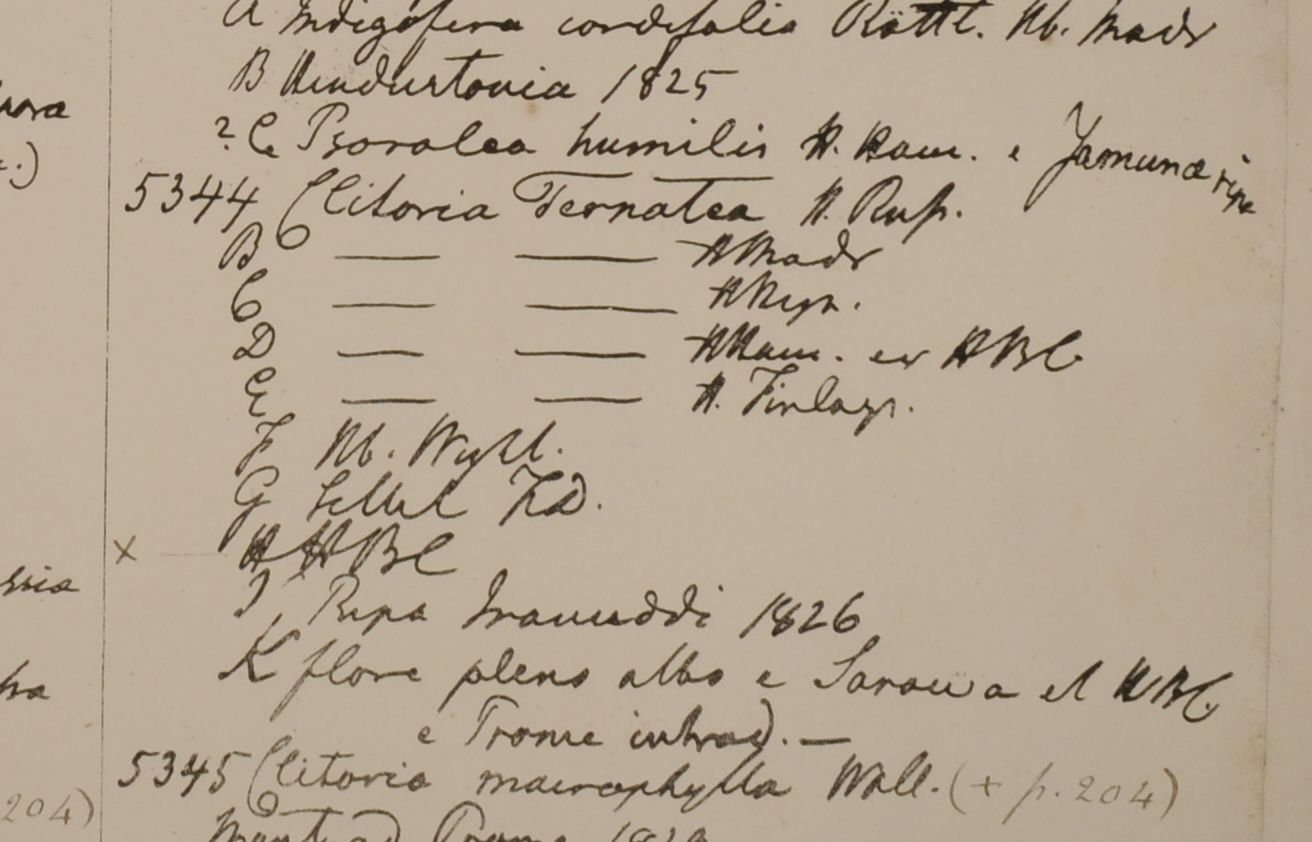 A Indigofera cordifolia Rottl. Hb. Madr
B Hindustonia 1825
? C Psoralea humilis H. Ham. e Jamunæ ripa
5344 Clitoria Ternatea H. Russ.
B — — H Madr
C — — H Heyn.
D — — H Ham. ex HBC
E — — H. Finlays.
F Hb. Wight.
G Sillet F.D.
x H HBC
I, Ripa Irawaddi 1826
K flore pleno albo e et HBC
e Prome introd. —
5345 Clitoria macrophylla Wall. (+ p. 204)
Mont ad Prome
204)